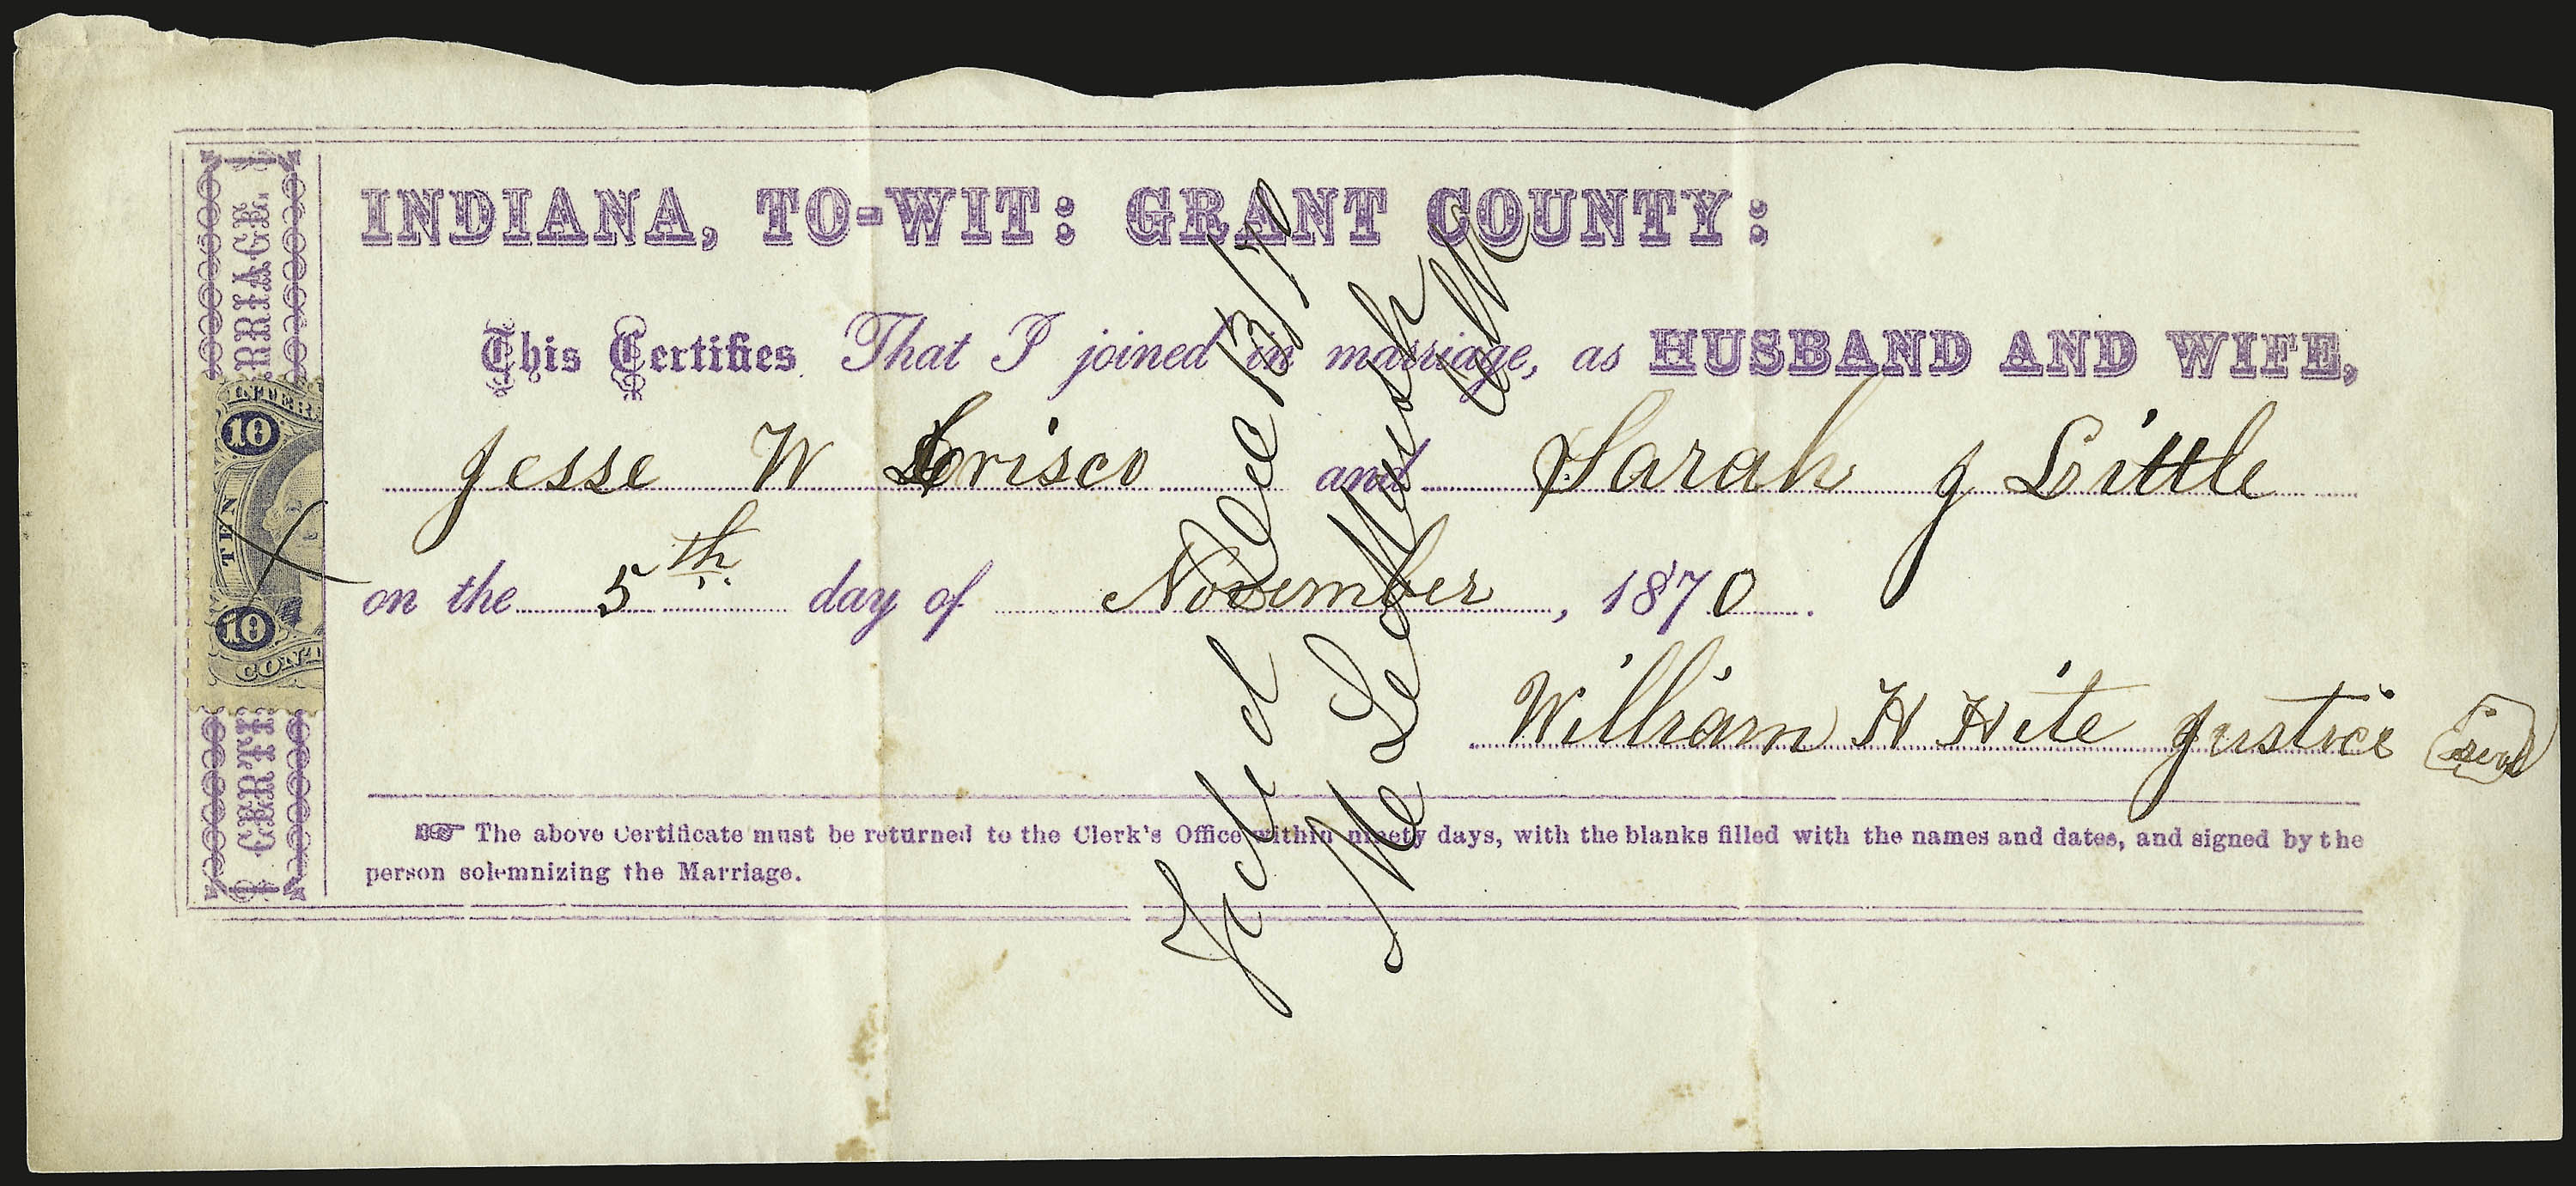 INDIANA, TO-WIT: GRANT COUNTY:
This Certifies That I joined in marriage, as HUSBAND AND WIFE,
Jesse W Crisco and Sarah J Little
on the 5th day of November, 1870.
William H Hite Justice Seal
☞ The above Certificate must be returned to the Clerk's Office within ninety days, with the blanks filled with the names and dates, and signed by the
person solemnizing the Marriage.
CERTI RRIAGE.
INTER
10
TEN
10
CENT
Filed Dec 13/70
Clk